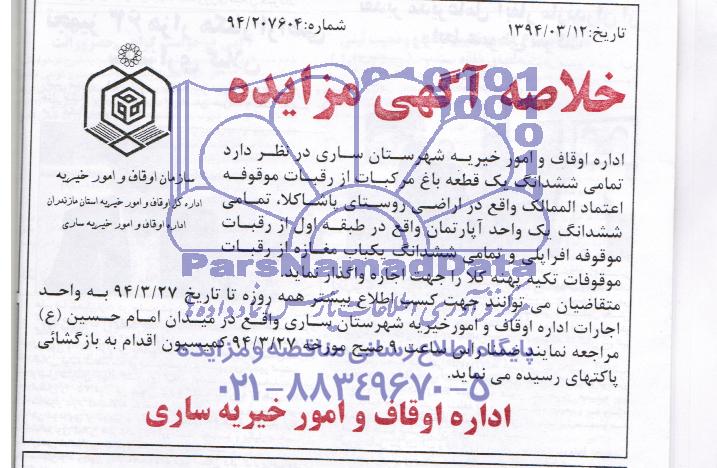 تاریخ: ۱۳۹۴/۰۳/۱۲
شماره: ۹۴/۲۰۷۶۰۴
خلاصه آگهی مزایده
سازمان اوقاف و امور خیریه
اداره کل اوقاف و امور خیریه استان مازندران
اداره اوقاف و امور خیریه ساری
اداره اوقاف و امور خیریه شهرستان ساری در نظر دارد
تمامی ششدانگ یک قطعه باغ مرکبات از رقبات موقوفه
اعتماد الممالک واقع در اراضی روستای پاشاکلا، تمامی
ششدانگ یک واحد آپارتمان واقع در طبقه اول از رقبات
موقوفه افراپلی و تمامی ششدانگ یکباب مغازه از رقبات
موقوفات تکیه پهنه کلا را جهت اجاره واگذار نماید.
متقاضیان می توانند جهت کسب اطلاع بیشتر همه روزه تا تاریخ ۹۴/۳/۲۷ به واحد
اجارات اداره اوقاف و امورخیریه شهرستان ساری واقع در میدان امام حسین (ع)
مراجعه نمایند ضمنا راس ساعت ۹ صبح مورخه ۹۴/۳/۲۷ کمیسیون اقدام به بازگشائی
پاکتهای رسیده می نماید.
اداره اوقاف و امور خیریه ساری
010101
001
10
ParsNamadData
مرکز فرآوری اطلاعات پارس نماد داده ها
پایگاه اطلاع رسانی مناقصه و مزایده
۰۲۱-۸۸۳۴۹۶۷۰-۵